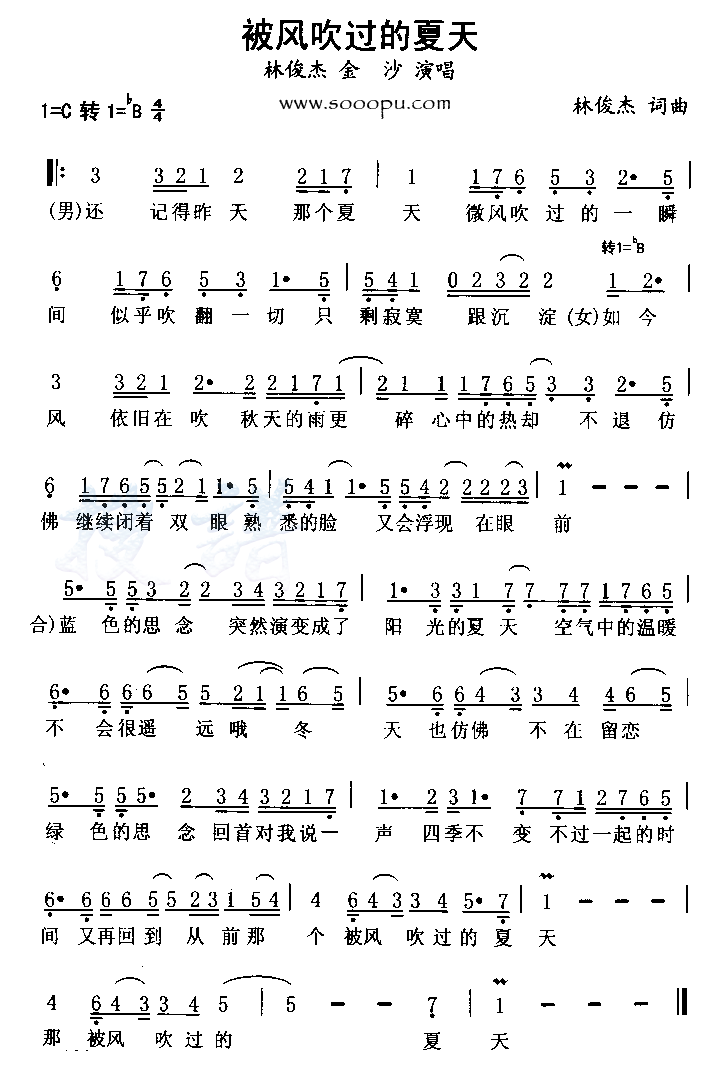 被风吹过的夏天
林俊杰 金 沙 演唱
1=C 转 1=♭B 4/4
www.sooopu.com
林俊杰 词曲
3 3 2 1 2 2 1 7 | 1 1 7 6 5 3 2• 5 |
(男)还 记得昨 天 那个夏 天 微风吹 过的一 瞬
转1=♭B
6 1 7 6 5 3 1• 5 | 5 4 1 0 2 3 2 2 1 2•
间 似乎吹 翻一切 只 剩寂寞 跟沉 淀 (女)如今
3 3 2 1 2• 2 2 1 7 1 | 2 1 1 1 7 6 5 3 3 2• 5 |
风 依旧在 吹 秋天的雨更 碎 心中的热却 不退 仿
6 1 7 6 5 5 2 1 1• 5 | 5 4 1 1• 5 5 4 2 2 2 2 3 | 1 - - -
佛 继续闭着 双 眼 熟 悉的脸 又会浮现 在眼 前
5• 5 5 3 2 2 3 4 3 2 1 7 | 1• 3 3 1 7 7 7 1 7 6 5 |
合)蓝 色的思 念 突然演变成了 阳 光的夏 天 空气中的温暖
6• 6 6 6 5 5 2 1 1 6 5 | 5• 6 6 4 3 3 4 4 6 5 |
不 会很遥 远哦 冬 天 也仿佛 不 在 留恋
5• 5 5 5• 2 3 4 3 2 1 7 | 1• 2 3 1• 7 7 1 2 7 6 5 |
绿 色的思 念 回首对我说一 声 四季不 变 不过一起的时
6• 6 6 6 5 5 2 3 1 5 4 | 4 6 4 3 3 4 5• 7 | 1 - - -
间 又再回到 从 前那 个 被风 吹过的 夏 天
4 6 4 3 3 4 5 5 | 5 - - 7 | 1 - -
那 被风 吹过的 夏 天